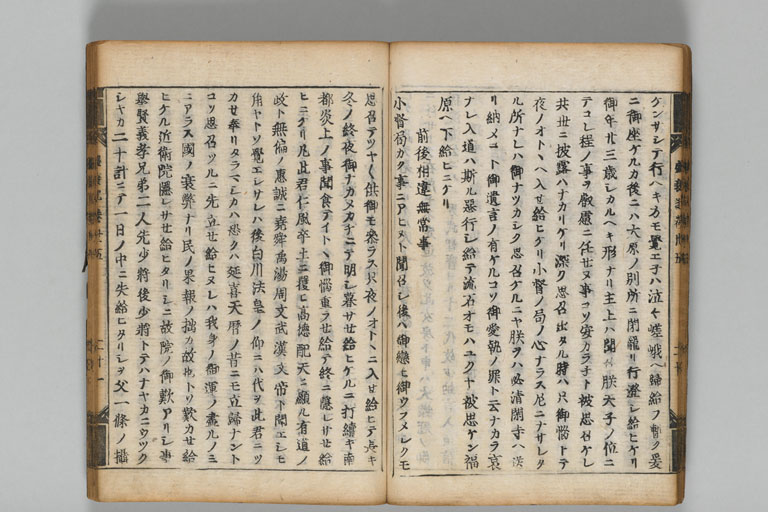 ケンサシテ行ヘキ方モ覚エ子ハ泣々嵯峨ヘ帰給フ暫ク爰
ニ御座ケルカ後ニハ大原ノ別所ニ閉籠リ行澄シ給ヒケリ
御年廿三歳シカルヘキ形ナリ主上ハ聞召朕天子ノ位ニ
テコレ程ノ事ヲ叡慮ニ任セヌ事コソ安カラ子ト被思召ケレ
共世ニ披露ハナカリケリ深ク思召出タル時ハ只御悩トテ
夜ノオトヽヘ入セ給ヒケリ小督ノ局ノ心ナラス尼ニナサレタ
ル所ナレハ御ナツカシク思召ケルニヤ朕ヲハ必清閑寺ヘ送
リ納メヨト御遺言ノ有ケルコソ御愛執ノ罪ト云ナカラ哀
ナレ入道ハ斯ル悪行シ給テ流石オモハユクヤ被思ケン福
原ヘ下給ヒニケリ
前後相違無常事
小督局カク事ニアヒヌト聞召シ後ハ御戀ヒ御ウラメシクモ
思召テツヤ〱供御モ参ラス只夜ノオトヽニ入セ給ヒテ長キ
冬ノ終夜御ナカメカチニテ明シ暮サセ給ヒケルニ打續キ南
都炎上ノ事聞食テイトヽ御悩重ラセ給テ終ニ隠レサセ給
ヒニケリ凡此君仁風卒土ニ覆ヒ高徳配天ニ顕ル有道ノ
政ト無偏ノ惠誠ニ堯舜禹湯周文武漢文帝ト聞エシモ
角ヤトソ覚エシサレハ後白川法皇ノ仰ニハ代ヲ此君ニツ
カセ奉リタラマシカハ恐クハ延喜天暦ノ昔ニモ立歸ナント
コソ思召ツルニ先立セ給ヒヌレハ我身ノ御運ノ盡ルノミ
ニアラス國ノ衰弊ナリ民ノ果報ノ拙カ故也トソ歎カセ給
ヒケル近衛院隠レサセ給ヒタリシニ故院ノ御歎アリシ事
擧賢義孝兄弟二人先少將後少將トテハナヤカニウツク
シヤカ二十計ニテ一日ノ中ニ失給ヒタリシヲ父一條ノ攝